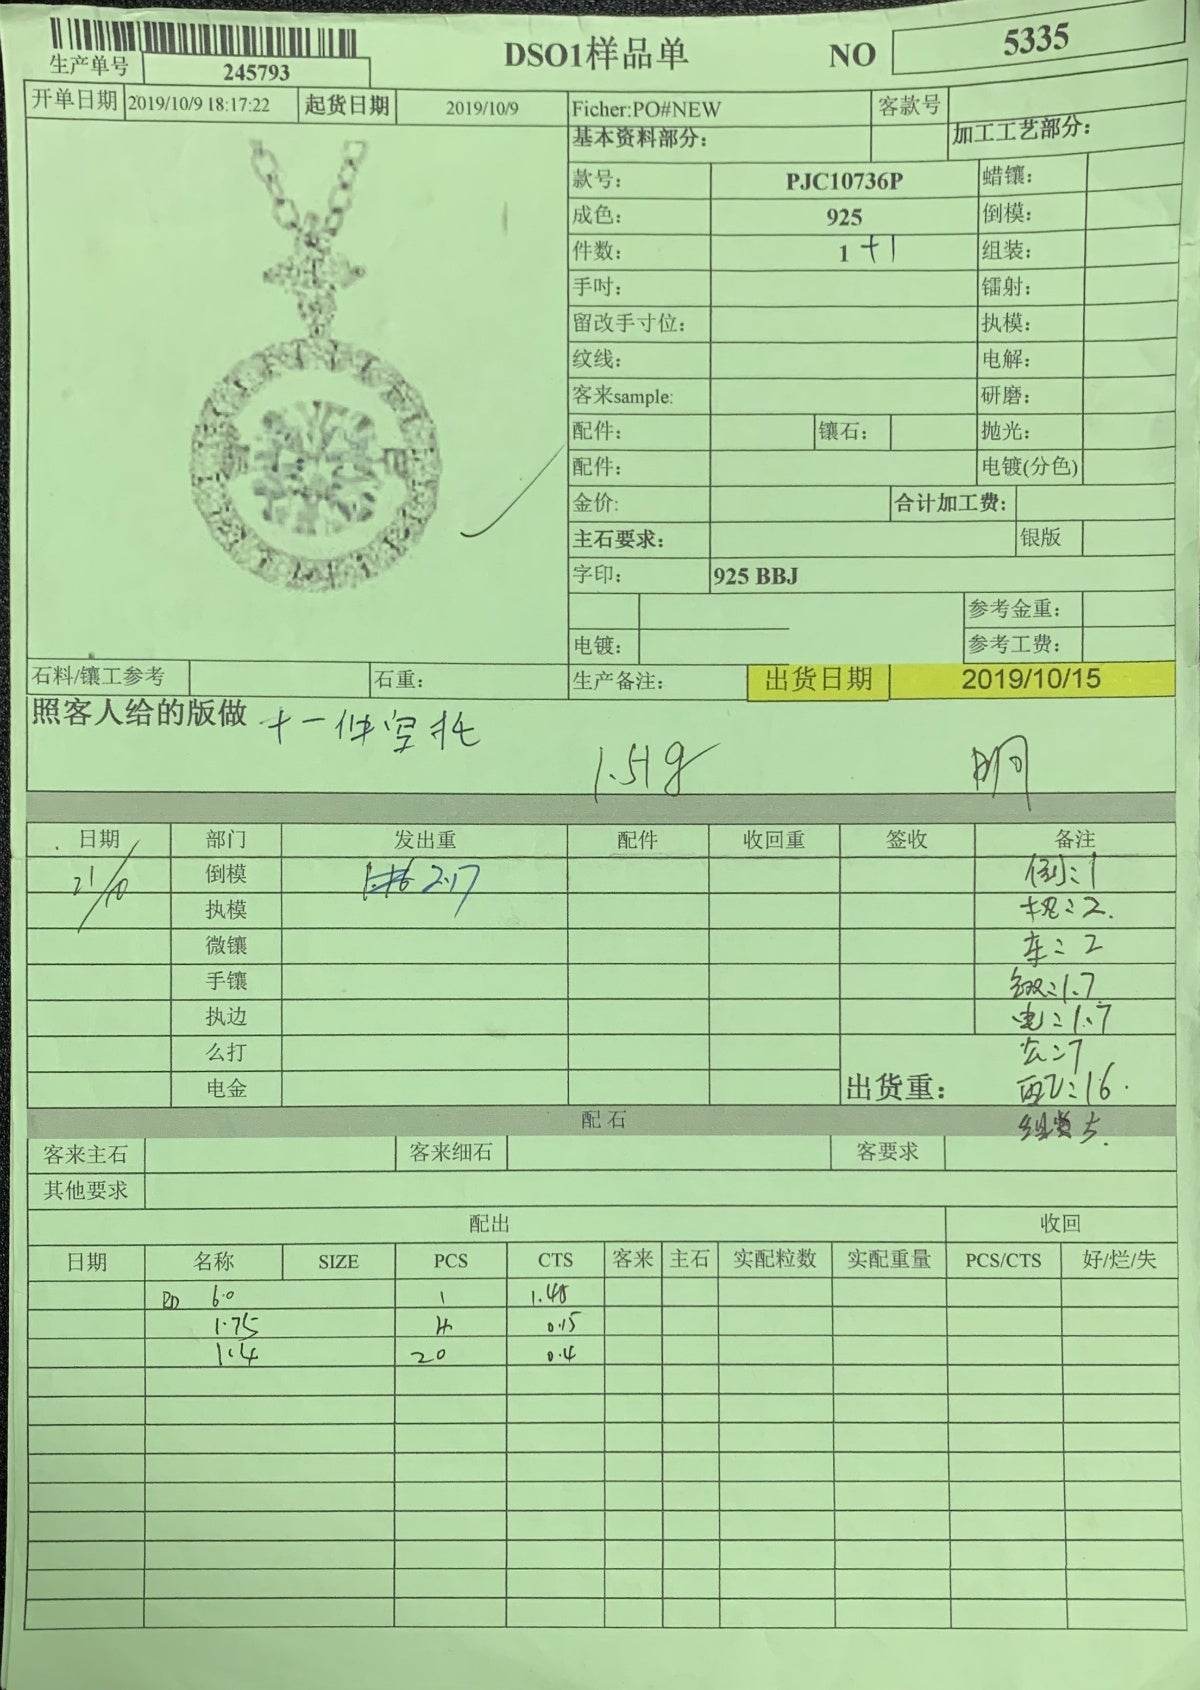 DSO1样品单 NO 5335
生产单号 245793
开单日期 2019/10/9 18:17:22 起货日期 2019/10/9 Ficher:PO#NEW 客款号
基本资料部分: 加工工艺部分:
款号: PJC10736P 蜡镶:
成色: 925 倒模:
件数: 1 +1 组装:
手吋: 镭射:
留改手寸位: 执模:
纹线: 电解:
客来sample: 研磨:
配件: 镶石: 抛光:
配件: 电镀(分色)
金价: 合计加工费:
主石要求: 银版
字印: 925 BBJ
参考金重:
电镀: 参考工费:
石料/镶工参考 石重: 生产备注: 出货日期 2019/10/15
照客人给的版做 十一件空托
1.51g
日期 部门 发出重 配件 收回重 签收 备注
21/10 倒模 2.17 倒:1
执模 执:2.
微镶 车:2
手镶 1.7
执边 电:1.7
么打 么:7
电金 出货重: 配:16.
配石
客来主石 客来细石 客要求
其他要求
配出 收回
日期 名称 SIZE PCS CTS 客来 主石 实配粒数 实配重量 PCS/CTS 好/烂/失
RD 6.0 1 1.48
1.75 0.15
1.4 20 0.4